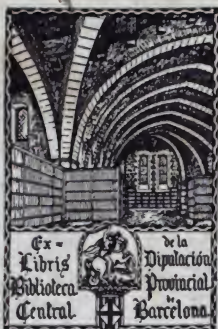 Ex =
Libris
Biblioteca
Central
de la
Diputación
Provincial
de
Barcelona